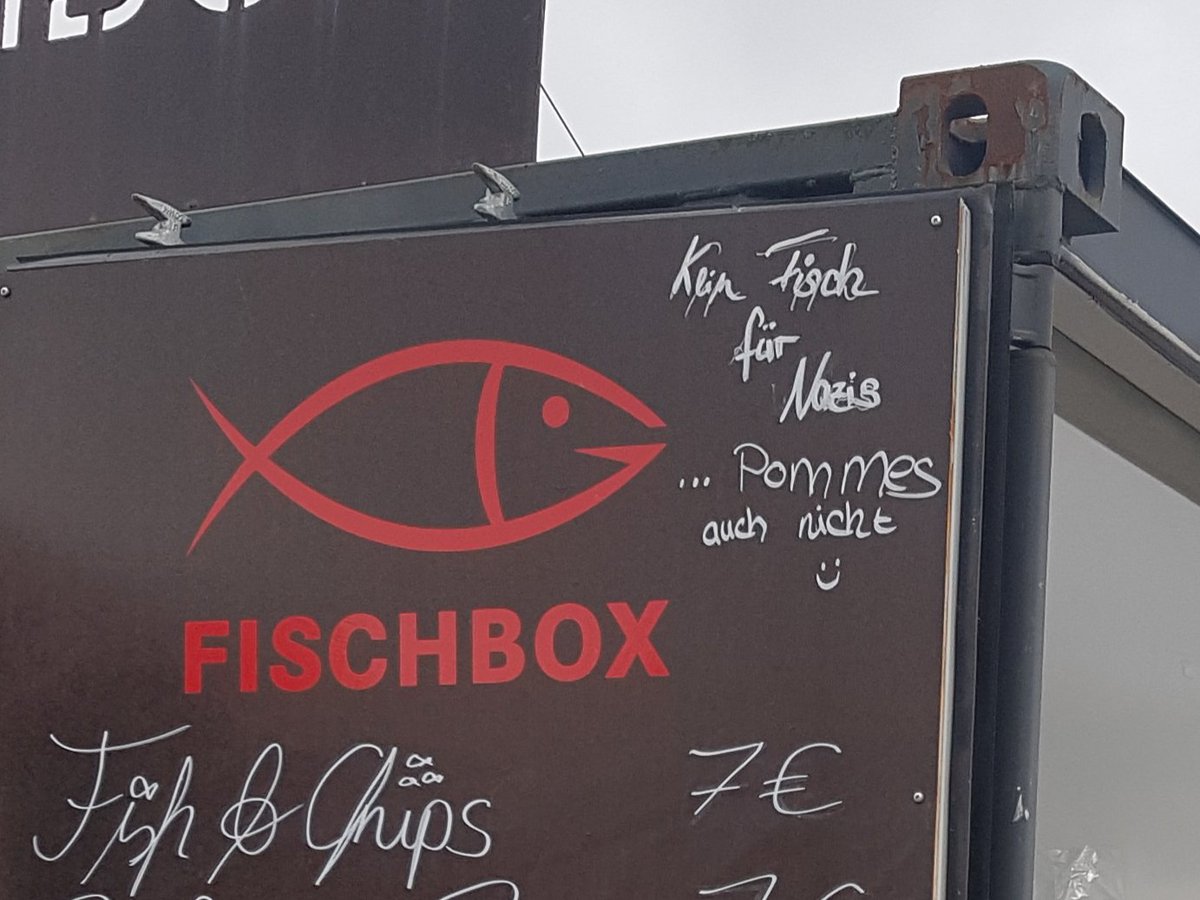 Kein Fisch
für
Nazis
... Pommes
auch nicht
FISCHBOX
Fish & Chips 7€